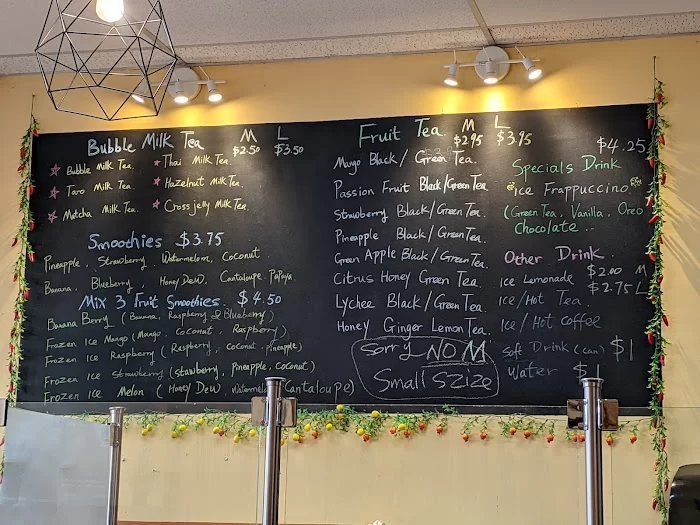 Bubble Milk Tea M L
$2.50 $3.50
Bubble Milk Tea. Thai Milk Tea.
Taro Milk Tea. Hazelnut Milk Tea.
Matcha Milk Tea. Crossjelly Milk Tea.
Smoothies $3.75
Pineapple. Strawberry Watermelom, Coconut.
Banana. Blueberry. Honey Dew. Cantaloupe. Papaya.
Mix 3 Fruit Smoothies. $4.50
Banana Berry (Banana, Raspberry & Blueberry)
Frozen Ice Mango (Mango, Coconut, Raspberry).
Frozen Ice Raspberry (Raspberry, Coconut, Pineapple)
Frozen Ice Strawberry (stawberry, Pineapple, Coconut)
Frozen Ice Melon (Honey Dew Watermelon Cantaloupe)
Fruit Tea M L
$2.95 $3.95
Mango Black/Green Tea.
Passion Fruit Black/Green Tea
Strawberry Black/Green Tea.
Pineapple Black/Green Tea.
Green Apple Black/Green Tea.
Citrus Honey Green Tea.
Lychee Black/Green Tea.
Honey Ginger Lemon Tea.
Sorry NO M
Small Szize
$4.25
Specials Drink
Ice Frappuccino.
(Green Tea. Vanilla. Oreo
Chocolate..
Other Drink.
Ice Lemonade $2.00 M
$2.75 L
Ice/Hot Tea.
Ice/Hot Coffee
Soft Drink (can) $1
Water $1